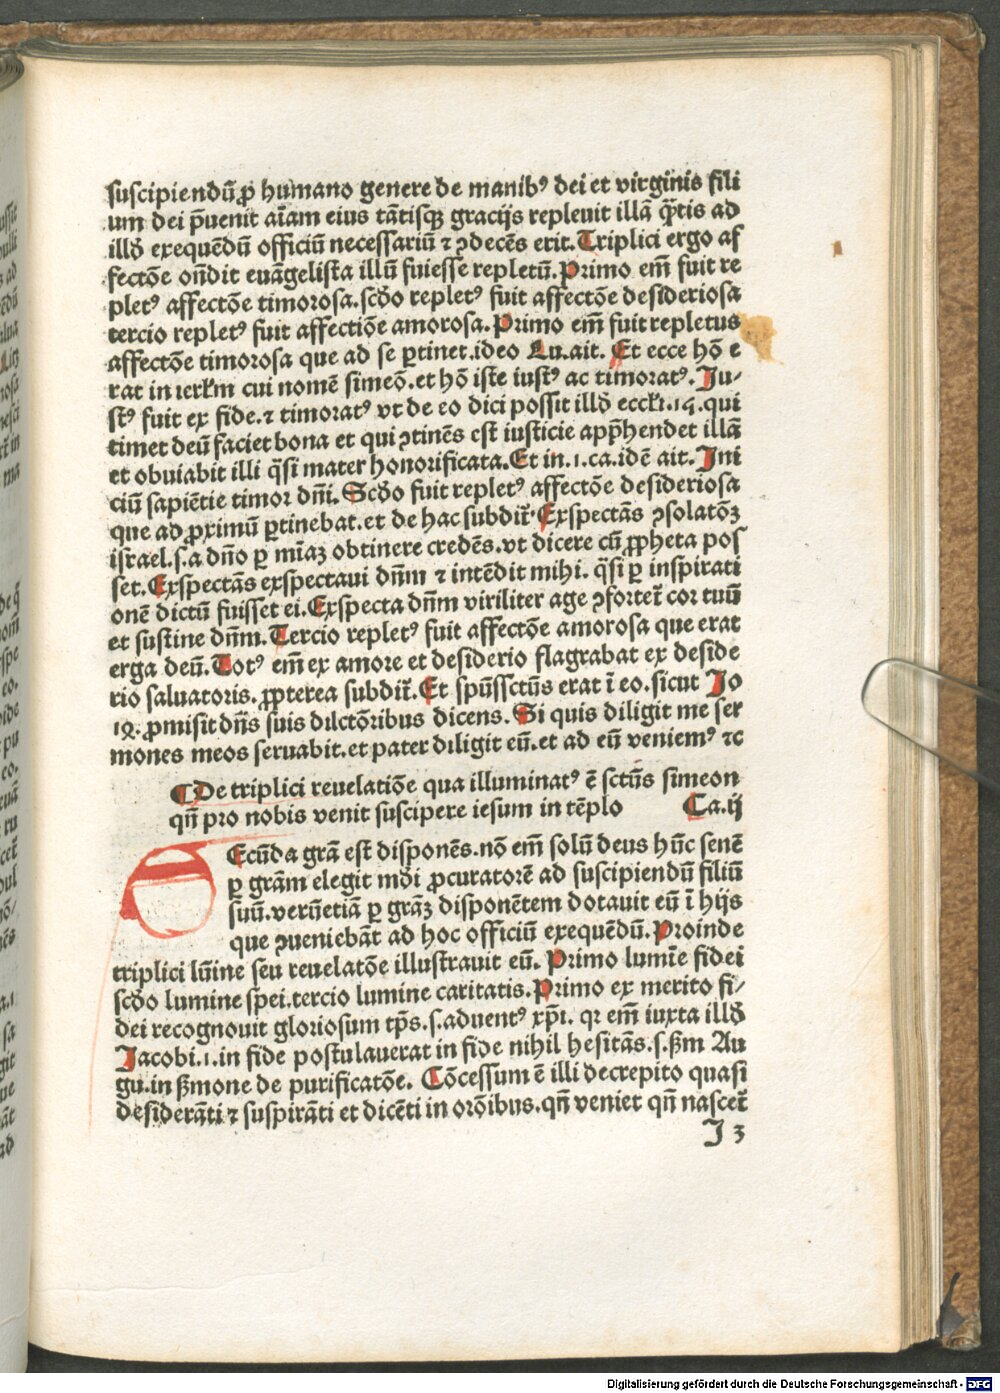 suscipiendū ꝓ humano genere de manibꝰ dei et virginis fili
um dei p̄uenit aīam eius tātisqꝫ gracijs repleuit illā q̄tis ad
illđ exequēdū officiū necessariū ⁊ ꝯdecēs erit. Triplici ergo af
fectōe ondit euāgelista illū fuiesse repletū. Primo em̄ fuit re
pletꝰ affectōe timorosa. scđo repletꝰ fuit affectōe desideriosa
tercio repletꝰ fuit affectiōe amorosa. Primo em̄ fuit repletus
affectōe timorosa que ad se ꝑtinet. ideo Lu. ait. Et ecce hō e
rat in ierłm cui nomē simeō. et hō iste iustꝰ ac timoratꝰ. Ju-
stꝰ fuit ex fide. ⁊ timoratꝰ vt de eo dici possit illđ eccłi. 15. qui
timet deū faciet bona et qui ꝯtinēs est iusticie app̄hendet illā
et obuiabit illi q̄si mater honorificata. Et in. 1. ca. idē ait. Jni
ciū sapiētie timor dn̄i. Scđo fuit repletꝰ affectōe desideriosa
que ad ꝓximū ꝑtinebat. et de hac subdit̄ Exspectās ꝯsolatōꝫ
israel. s. a dn̄o ꝑ mīaꝫ obtinere credēs. vt dicere cū ꝓpheta pos
set. Exspectās exspectaui dn̄m ⁊ intēdit mihi. q̄si ꝑ inspirati
onē dictū fuisset ei. Exspecta dn̄m viriliter age ꝯfortet̄ cor tuū
et sustine dn̄m. Tercio repletꝰ fuit affectōe amorosa que erat
erga deū. Totꝰ em̄ ex amore et desiderio flagrabat ex deside
rio saluatoris. ꝓpterea subdit̄. Et spūssctūs erat ī eo. sicut Jo
12. ꝓmisit dn̄s suis dilctōribus dicens. Si quis diligit me ser
mones meos seruabit. et pater diligit eū. et ad eū veniemꝰ ⁊c
¶ De triplici reuelatiōe qua illuminatꝰ ē sctūs simeon
qn̄ pro nobis venit suscipere iesum in tēplo Ca. ij
SEcūda grā est disponēs. nō em̄ solū deus hūc senē
ꝑ grām elegit mūdi ꝓcuratorē ad suscipiendū filiū
suū. verūetiā ꝑ grāꝫ disponētem dotauit eū ī hijs
que ꝯueniebāt ad hoc officiū exequēdū. Proinde
triplici lūine seu reuelatōe illustrauit eū. Primo lumīe fidei
scđo lumine spei. tercio lumine caritatis. Primo ex merito fi-
dei recognouit gloriosum tp̄s. s. aduentꝰ xp̄i. qꝛ em̄ iuxta illđ
Jacobi. 1. in fide postulauerat in fide nihil hesitās. s. ßm Au
gu. in ßmone de purificatōe. Cōcessum ē illi decrepito quasi
desiderāti ⁊ suspirāti et dicēti in orōibus. qn̄ veniet qn̄ nascet̄
J 3
Digitalisierung gefördert durch die Deutsche Forschungsgemeinschaft - DFG